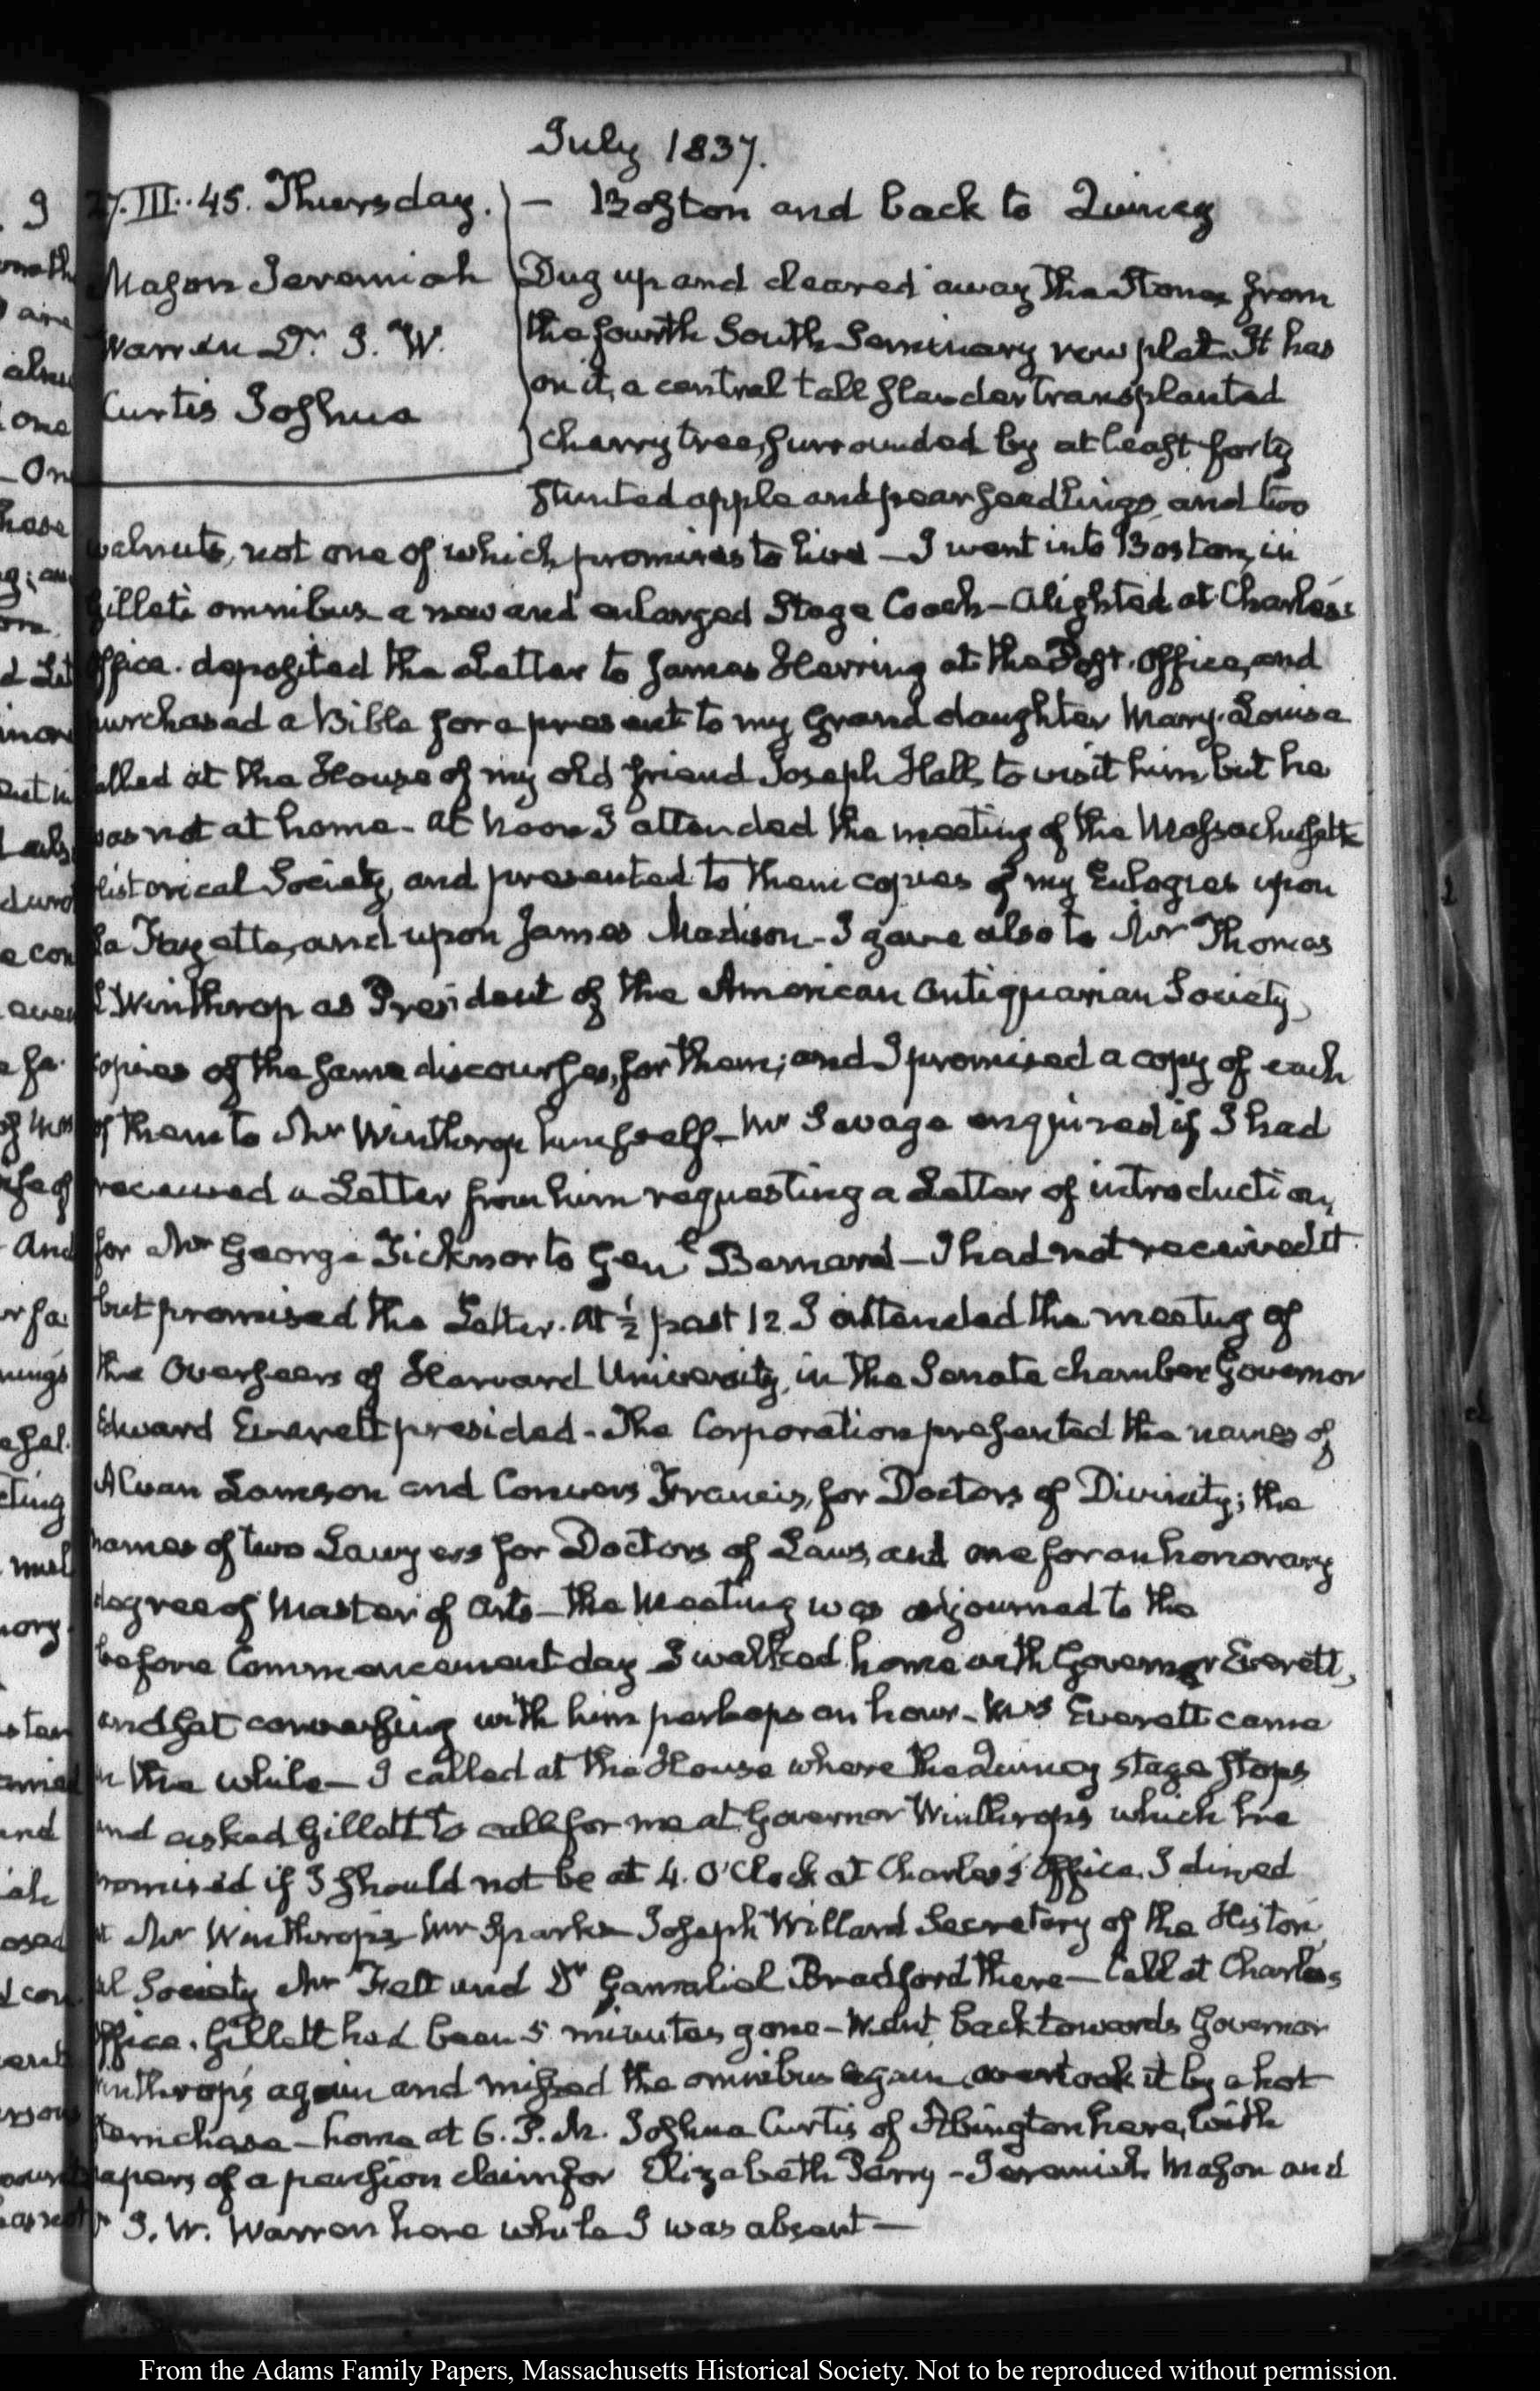 July 1837.
27. III..45. Thursday.
Mason Jeremiah
Warren Dr. J. W.
Curtis Joshua
— Boston and back to Quincy
Dug up and cleared away the Stones from
the fourth South Seminary row plat. It has
on it, a central tall slender transplanted
cherry tree, surrounded by at least forty
stunted apple and pear seedlings, and two
walnuts, not one of which promises to live — I went into Boston, in
Gillett's omnibus a new and enlarged Stage Coach — Alighted at Charles's
Office. deposited the Letter to James Herring at the Post-Office, and
purchased a Bible for a present to my Grand daughter Mary-Louisa
called at the House of my old friend Joseph Hall, to visit him but he
was not at home — At Noon I attended the meeting of the Massachusetts
Historical Society, and presented to them copies of my Eulogies upon
La Fayette, and upon James Madison — I gave also to Mr Thomas
L Winthrop as President of the American Antiquarian Society,
copies of the same discourses, for them; and I promised a copy of each
of them to Mr Winthrop himself — Mr Savage enquired if I had
received a Letter from him requesting a Letter of introduction,
for Mr George Ticknor to Genl Bernard — I had not received it
but promised the Letter. At ½ past 12 I attended the meeting of
the Overseers of Harvard University, in the Senate chamber Governor
Edward Everett presided — The Corporation presented the names of
Alvan Lamson and Convers Francis, for Doctors of Divinity; the
names of two Lawyers for Doctors of Laws, and one for an honorary
degree of Master of Arts — The Meeting was adjourned to the
before Commencement day I walked home with Governor Everett,
and sat conversing with him perhaps an hour — Mrs Everett came
in the while — I called at the House where the Quincy stage stops
and asked Gillett to call for me at Governor Winthrop's which he
promised if I should not be at 4. O'Clock at Charles's Office. I dined
at Mr Winthrop's Mr Sparks Joseph Willard Secretary of the Histori
cal Society Mr Felt and Dr Gamaliel Bradford there — Call at Charles's
Office. Gillett had been 5 minutes gone — Went back towards Governor
Winthrop's again and missed the omnibus again, overtook it by a hot
stern chase — home at 6. P.M. Joshua Curtis of Abington here, with
papers of a pension claim for Elizabeth Perry — Jeremiah Mason and
Dr J. W. Warren here while I was absent —
From the Adams Family Papers, Massachusetts Historical Society. Not to be reproduced without permission.